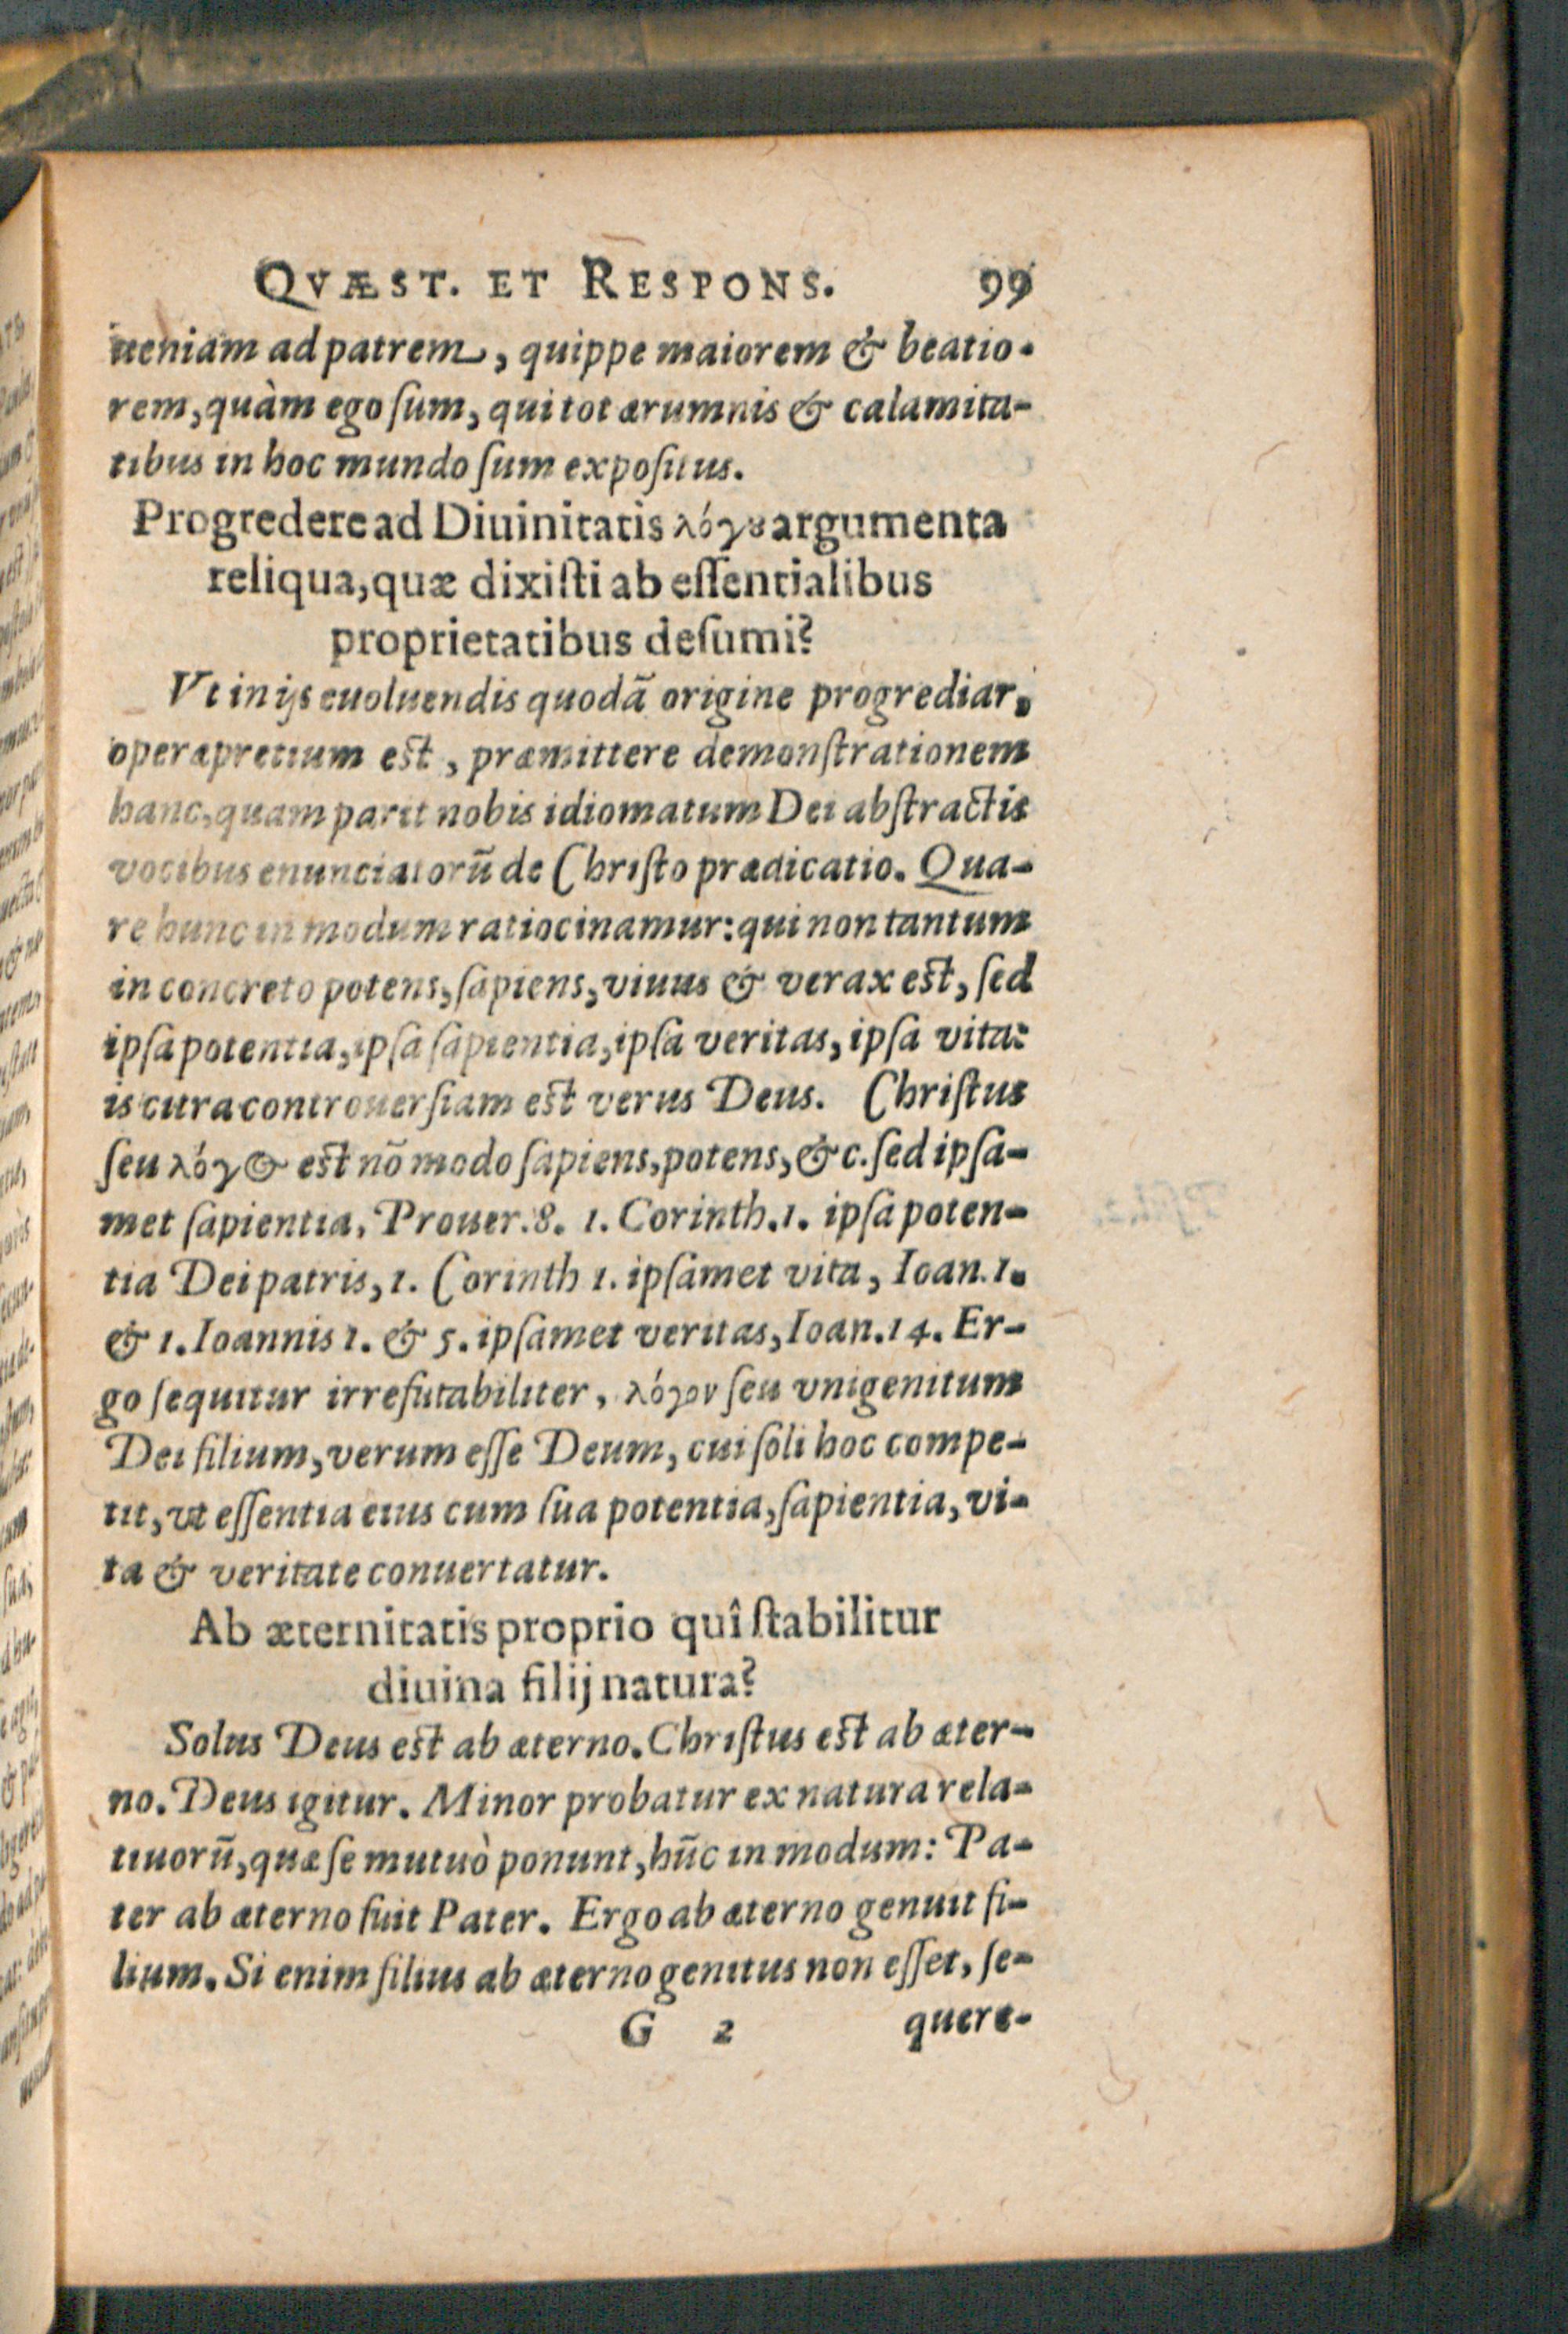 QVÆST. ET RESPONS. 99
ueniam ad patrem, quippe maiorem & beatio-
rem, quàm ego ſum, qui tot ærumnis & calamita-
tibus in hoc mundo ſum expoſitus.
Progredere ad Diuinitatis λόγȣ argumenta
reliqua, quæ dixiſti ab eſſentialibus
proprietatibus deſumi?
Vt in ijs euoluendis quodā origine progrediar,
operæpretium eſt, præmittere demonſtrationem
hanc, quam parit nobis idiomatum Dei abſtractis
vocibus enunciatorū de Chriſto prædicatio. Qua-
re hunc in modum ratiocinamur: qui non tantum
in concreto potens, ſapiens, viuus & verax eſt, ſed
ipſa potentia, ipſa ſapientia, ipſa veritas, ipſa vita:
is citra controuerſiam eſt verus Deus. Chriſtus
ſeu λόγ&#64; eſt nō modo ſapiens, potens, &c. ſed ipſa-
met ſapientia, Prouer. 8. 1. Corinth. 1. ipſa poten-
tia Dei patris, 1. Corinth 1. ipſamet vita, Ioan. 1.
& 1. Ioannis 1. & 5. ipſamet veritas, Ioan. 14. Er-
go ſequitur irrefutabiliter, λόγον ſeu vnigenitum
Dei filium, verum eſſe Deum, cui ſoli hoc compe-
tit, vt eſſentia eius cum ſua potentia, ſapientia, vi-
ta & veritate conuertatur.
Ab æternitatis proprio quî ſtabilitur
diuina filij natura?
Solus Deus eſt ab æterno. Chriſtus eſt ab æter-
no. Deus igitur. Minor probatur ex natura rela-
tiuorū, quæ ſe mutuò ponunt, hūc in modum: Pa-
ter ab æterno fuit Pater. Ergo ab æterno genuit fi-
lium. Si enim filius ab æterno genitus non eſſet, ſe-
G 2 quere-